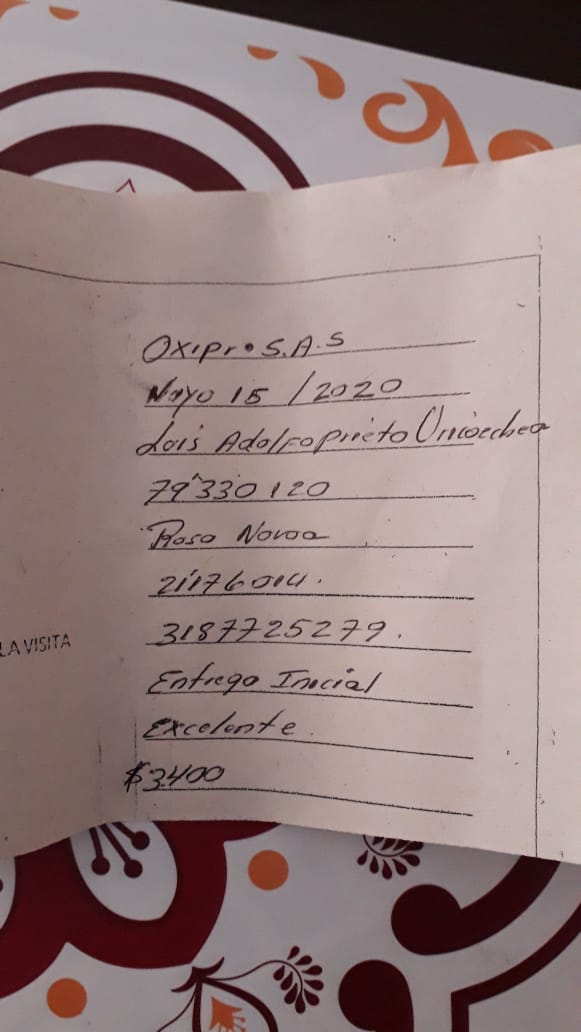 Oxipro S.A.S
Mayo 15 / 2020
Luis Adolfo Prieto Unicoechea
79'330 120
Rosa Novoa
21'176014.
LA VISITA
3187725279.
Entrega Inicial
Excelente.
$3.400